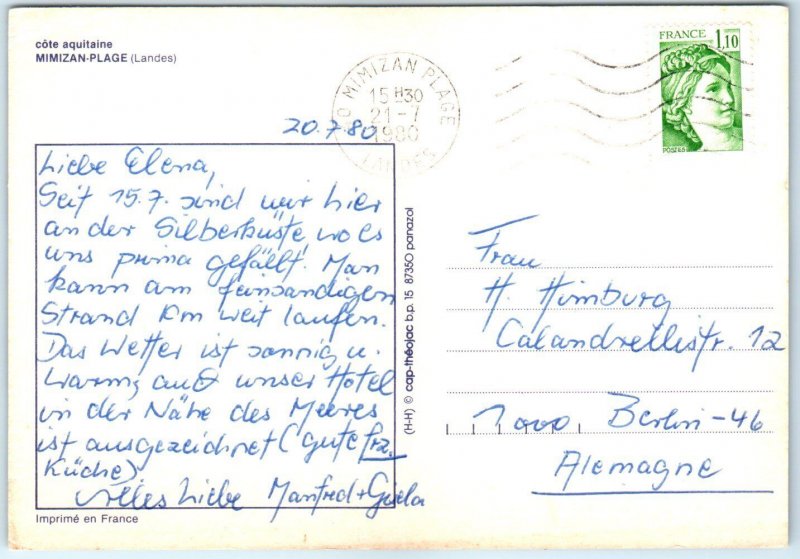 côte aquitaine
MIMIZAN-PLAGE (Landes)
40 MIMIZAN PLAGE
15 H30
21-7
1980
LANDES
FRANCE 1,10
POSTES
20.7.80
Liebe Elena,
Seit 15.7. sind wir hier
an der Silberküste, wo es
uns prima gefällt. Man
kann am feinsandigen
Strand km weit laufen.
Das Wetter ist sonnig u.
warm, auch unser Hotel
in der Nähe des Meeres
ist ausgezeichnet (gute frz.
Küche)
Alles Liebe Manfred + Gisela
(H-H) © cap-théojac b.p. 15 87350 panazol
Frau
H. Himburg
Calandrellistr. 12
1000 Berlin-46
Alemagne
Imprimé en France